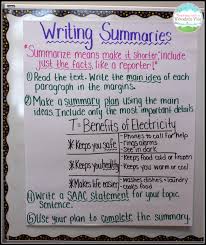 Writing Summaries
"Summarize means make it shorter, include
just the facts, like a reporter!"
① Read the text. Write the main idea of each
paragraph in the margins.
② Make a summary plan using the main
ideas. Include only the most important details.
T = Benefits of Electricity
*Keeps you safe
- Phones to call for help
- ring alarms
- see in dark
*Keeps you healthy
- Keeps food cold or frozen
- Keeps you warm or cool
*Makes life easier
- washes dishes + laundry
- cooks food
④ Write a SAAC statement for your topic
sentence.
⑤ Use your plan to complete the summary.